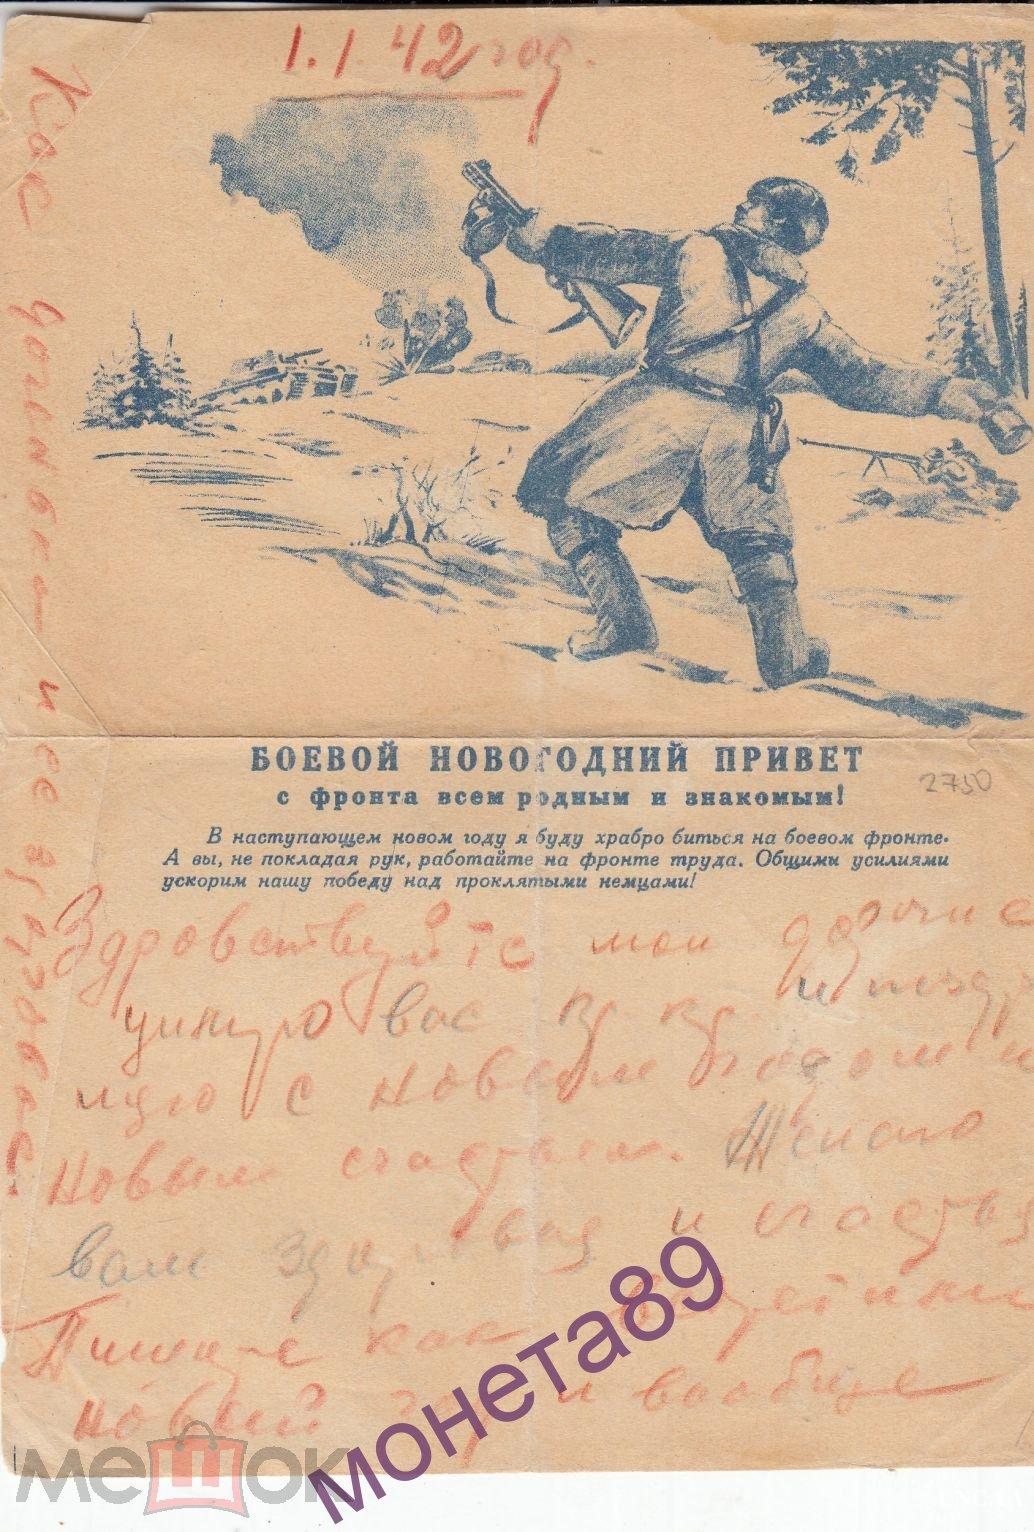 1.1.42 год.
БОЕВОЙ НОВОГОДНИЙ ПРИВЕТ
с фронта всем родным и знакомым!
2750
В наступающем новом году я буду храбро биться на боевом фронте.
А вы, не покладая рук, работайте на фронте труда. Общими усилиями
ускорим нашу победу над проклятыми немцами!
Здравствуйте мои дорогие
целую вас кр. кр. и поздр
ляю с Новым годом и
Новым счастьем. Желаю
вам здоровья и счастья
Пишите как встретили
новый год и вообще
Как доченька и ее здоровье.
мешок
монета89